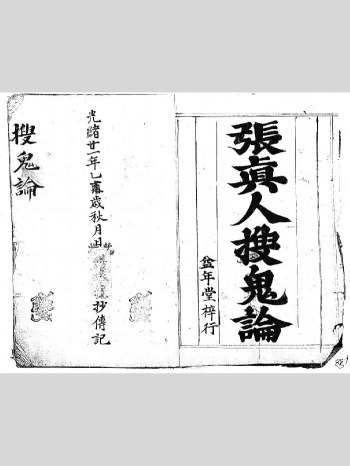 張眞人搜鬼論
盆年堂梓行
光緒廿一年乙 歲秋月 抄傳記
搜鬼論